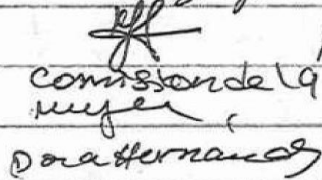 comission de la
mujer
Dora Hernandes